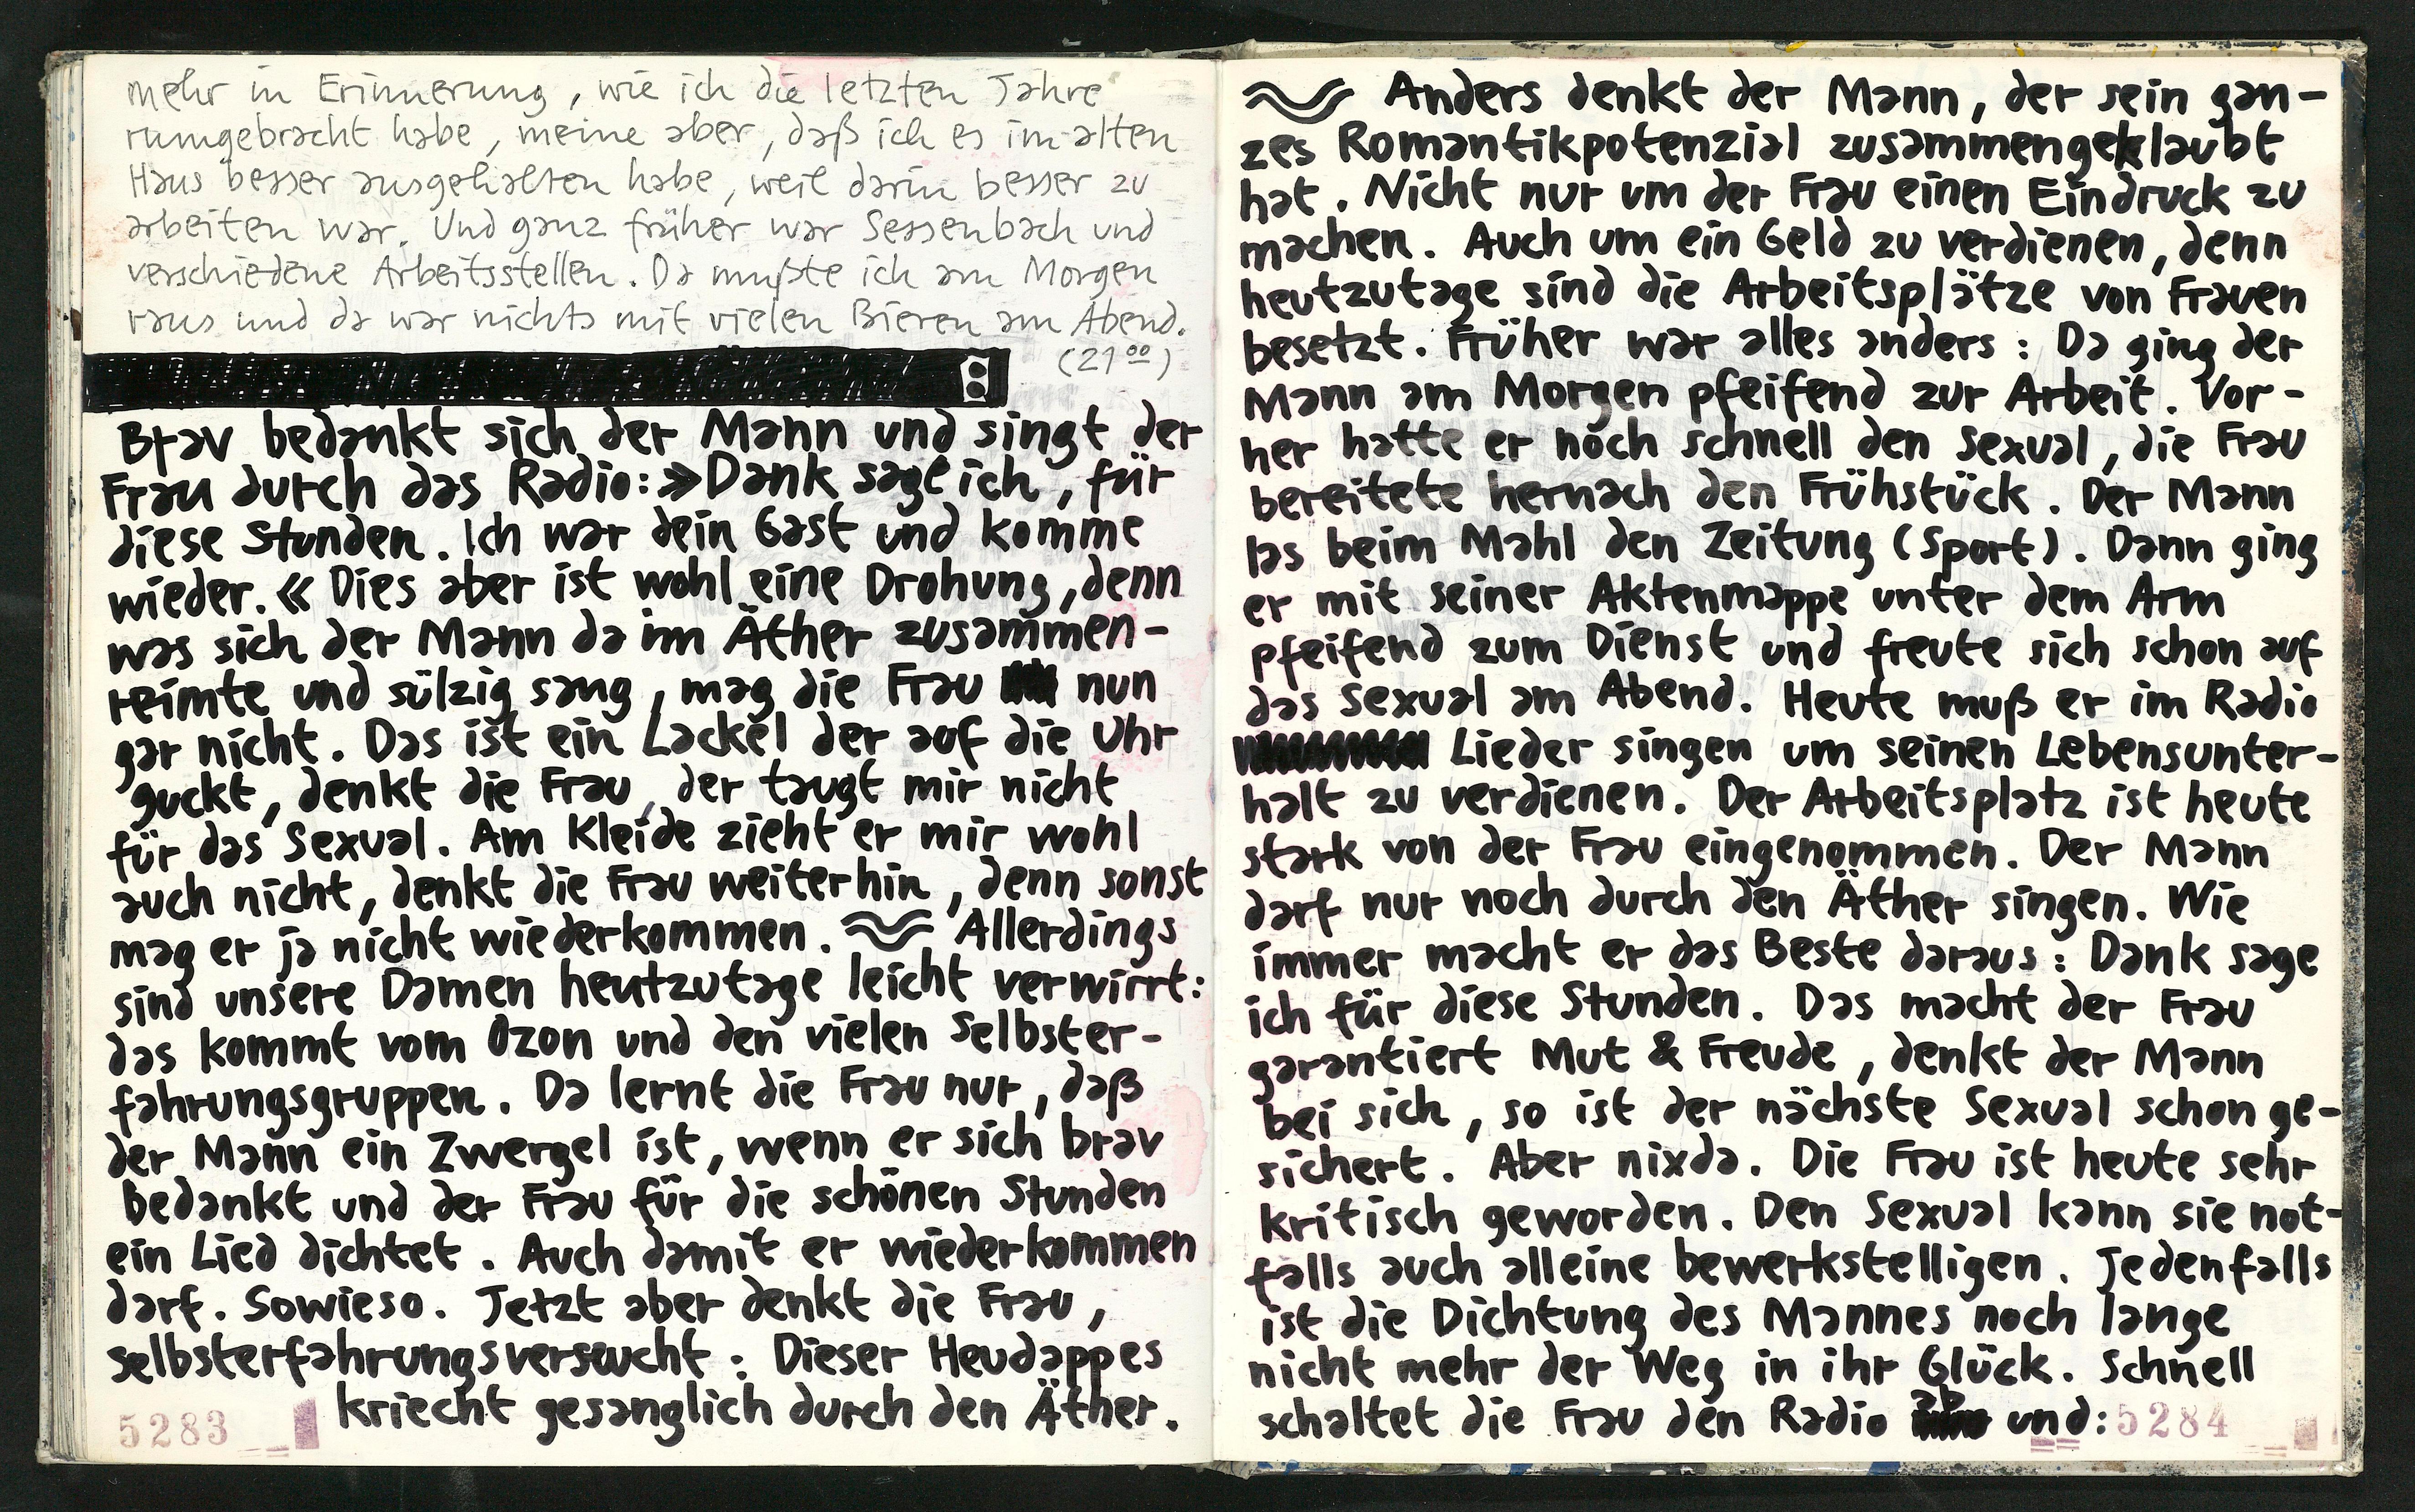 mehr in Erinnerung, wie ich die letzten Jahre
rumgebracht habe, meine aber, daß ich es im alten
Haus besser ausgehalten habe, weil darin besser zu
arbeiten war. Und ganz früher war Sessenbach und
verschiedene Arbeitsstellen. Da mußte ich am Morgen
raus und da war nichts mit vielen Bieren am Abend.
(21⁰⁰)
Brav bedankt sich der Mann und singt der
Frau durch das Radio: »Dank sage ich, für
diese Stunden. Ich war dein Gast und komme
wieder.« Dies aber ist wohl eine Drohung, denn
was sich der Mann da im Äther zusammen-
reimte und sülzig sang, mag die Frau nun
gar nicht. Das ist ein Lackel der auf die Uhr
guckt, denkt die Frau, der taugt mir nicht
für das Sexual. Am Kleide zieht er mir wohl
auch nicht, denkt die Frau weiterhin, denn sonst
mag er ja nicht wiederkommen. Allerdings
sind unsere Damen heutzutage leicht verwirrt:
das kommt vom Ozon und den vielen Selbster-
fahrungsgruppen. Da lernt die Frau nur, daß
der Mann ein Zwergel ist, wenn er sich brav
bedankt und der Frau für die schönen Stunden
ein Lied dichtet. Auch damit er wiederkommen
darf. Sowieso. Jetzt aber denkt die Frau,
selbsterfahrungsverseucht: Dieser Heudappes
kriecht gesanglich durch den Äther.
5283
Anders denkt der Mann, der sein gan-
zes Romantikpotenzial zusammengeklaubt
hat. Nicht nur um der Frau einen Eindruck zu
machen. Auch um ein Geld zu verdienen, denn
heutzutage sind die Arbeitsplätze von Frauen
besetzt. Früher war alles anders: Da ging der
Mann am Morgen pfeifend zur Arbeit. Vor-
her hatte er noch schnell den Sexual, die Frau
bereitete hernach den Frühstück. Der Mann
las beim Mahl den Zeitung (Sport). Dann ging
er mit seiner Aktenmappe unter dem Arm
pfeifend zum Dienst und freute sich schon auf
das Sexual am Abend. Heute muß er im Radio
Lieder singen um seinen Lebensunter-
halt zu verdienen. Der Arbeitsplatz ist heute
stark von der Frau eingenommen. Der Mann
darf nur noch durch den Äther singen. Wie
immer macht er das Beste daraus: Dank sage
ich für diese Stunden. Das macht der Frau
garantiert Mut & Freude, denkt der Mann
bei sich, so ist der nächste Sexual schon ge-
sichert. Aber nixda. Die Frau ist heute sehr
kritisch geworden. Den Sexual kann sie not-
falls auch alleine bewerkstelligen. Jedenfalls
ist die Dichtung des Mannes noch lange
nicht mehr der Weg in ihr Glück. Schnell
schaltet die Frau den Radio ab und:
5284